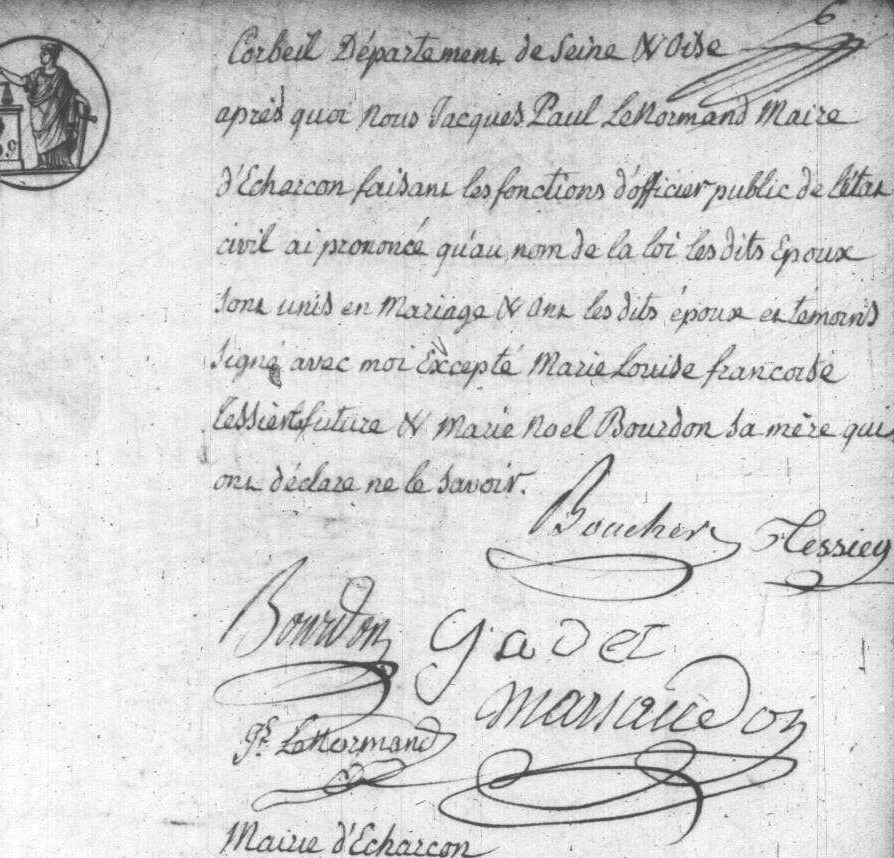 6
Corbeil Département de Seine & Oise
après quoi nous Jacques Paul LeNormand Maire
d'Echarcon faisant les fonctions d'officier public de l'état
civil ai prononcé qu'au nom de la loi les dits Epoux
sont unis en Mariage & ont les dits époux et témoins
signé avec moi Excepté Marie Louise francoise
Tessier future & Marie Noel Bourdon sa mère qui
ont déclare ne le savoir.
Boucher Tessier
Bourdon Gadet
LeNormand
Mairie d'Echarcon